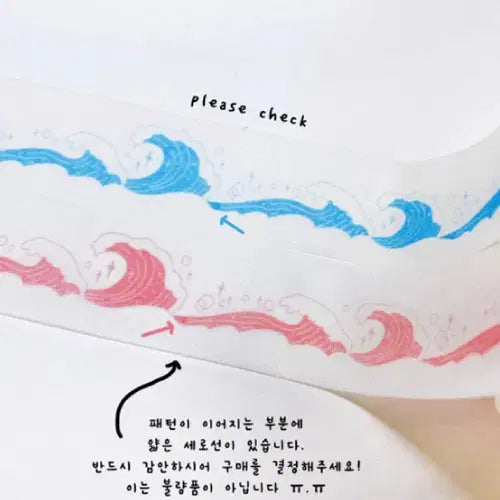 please check
패턴이 이어지는 부분에
얇은 세로선이 있습니다.
반드시 감안하시어 구매를 결정해주세요!
이는 불량품이 아닙니다 ㅠ.ㅠ